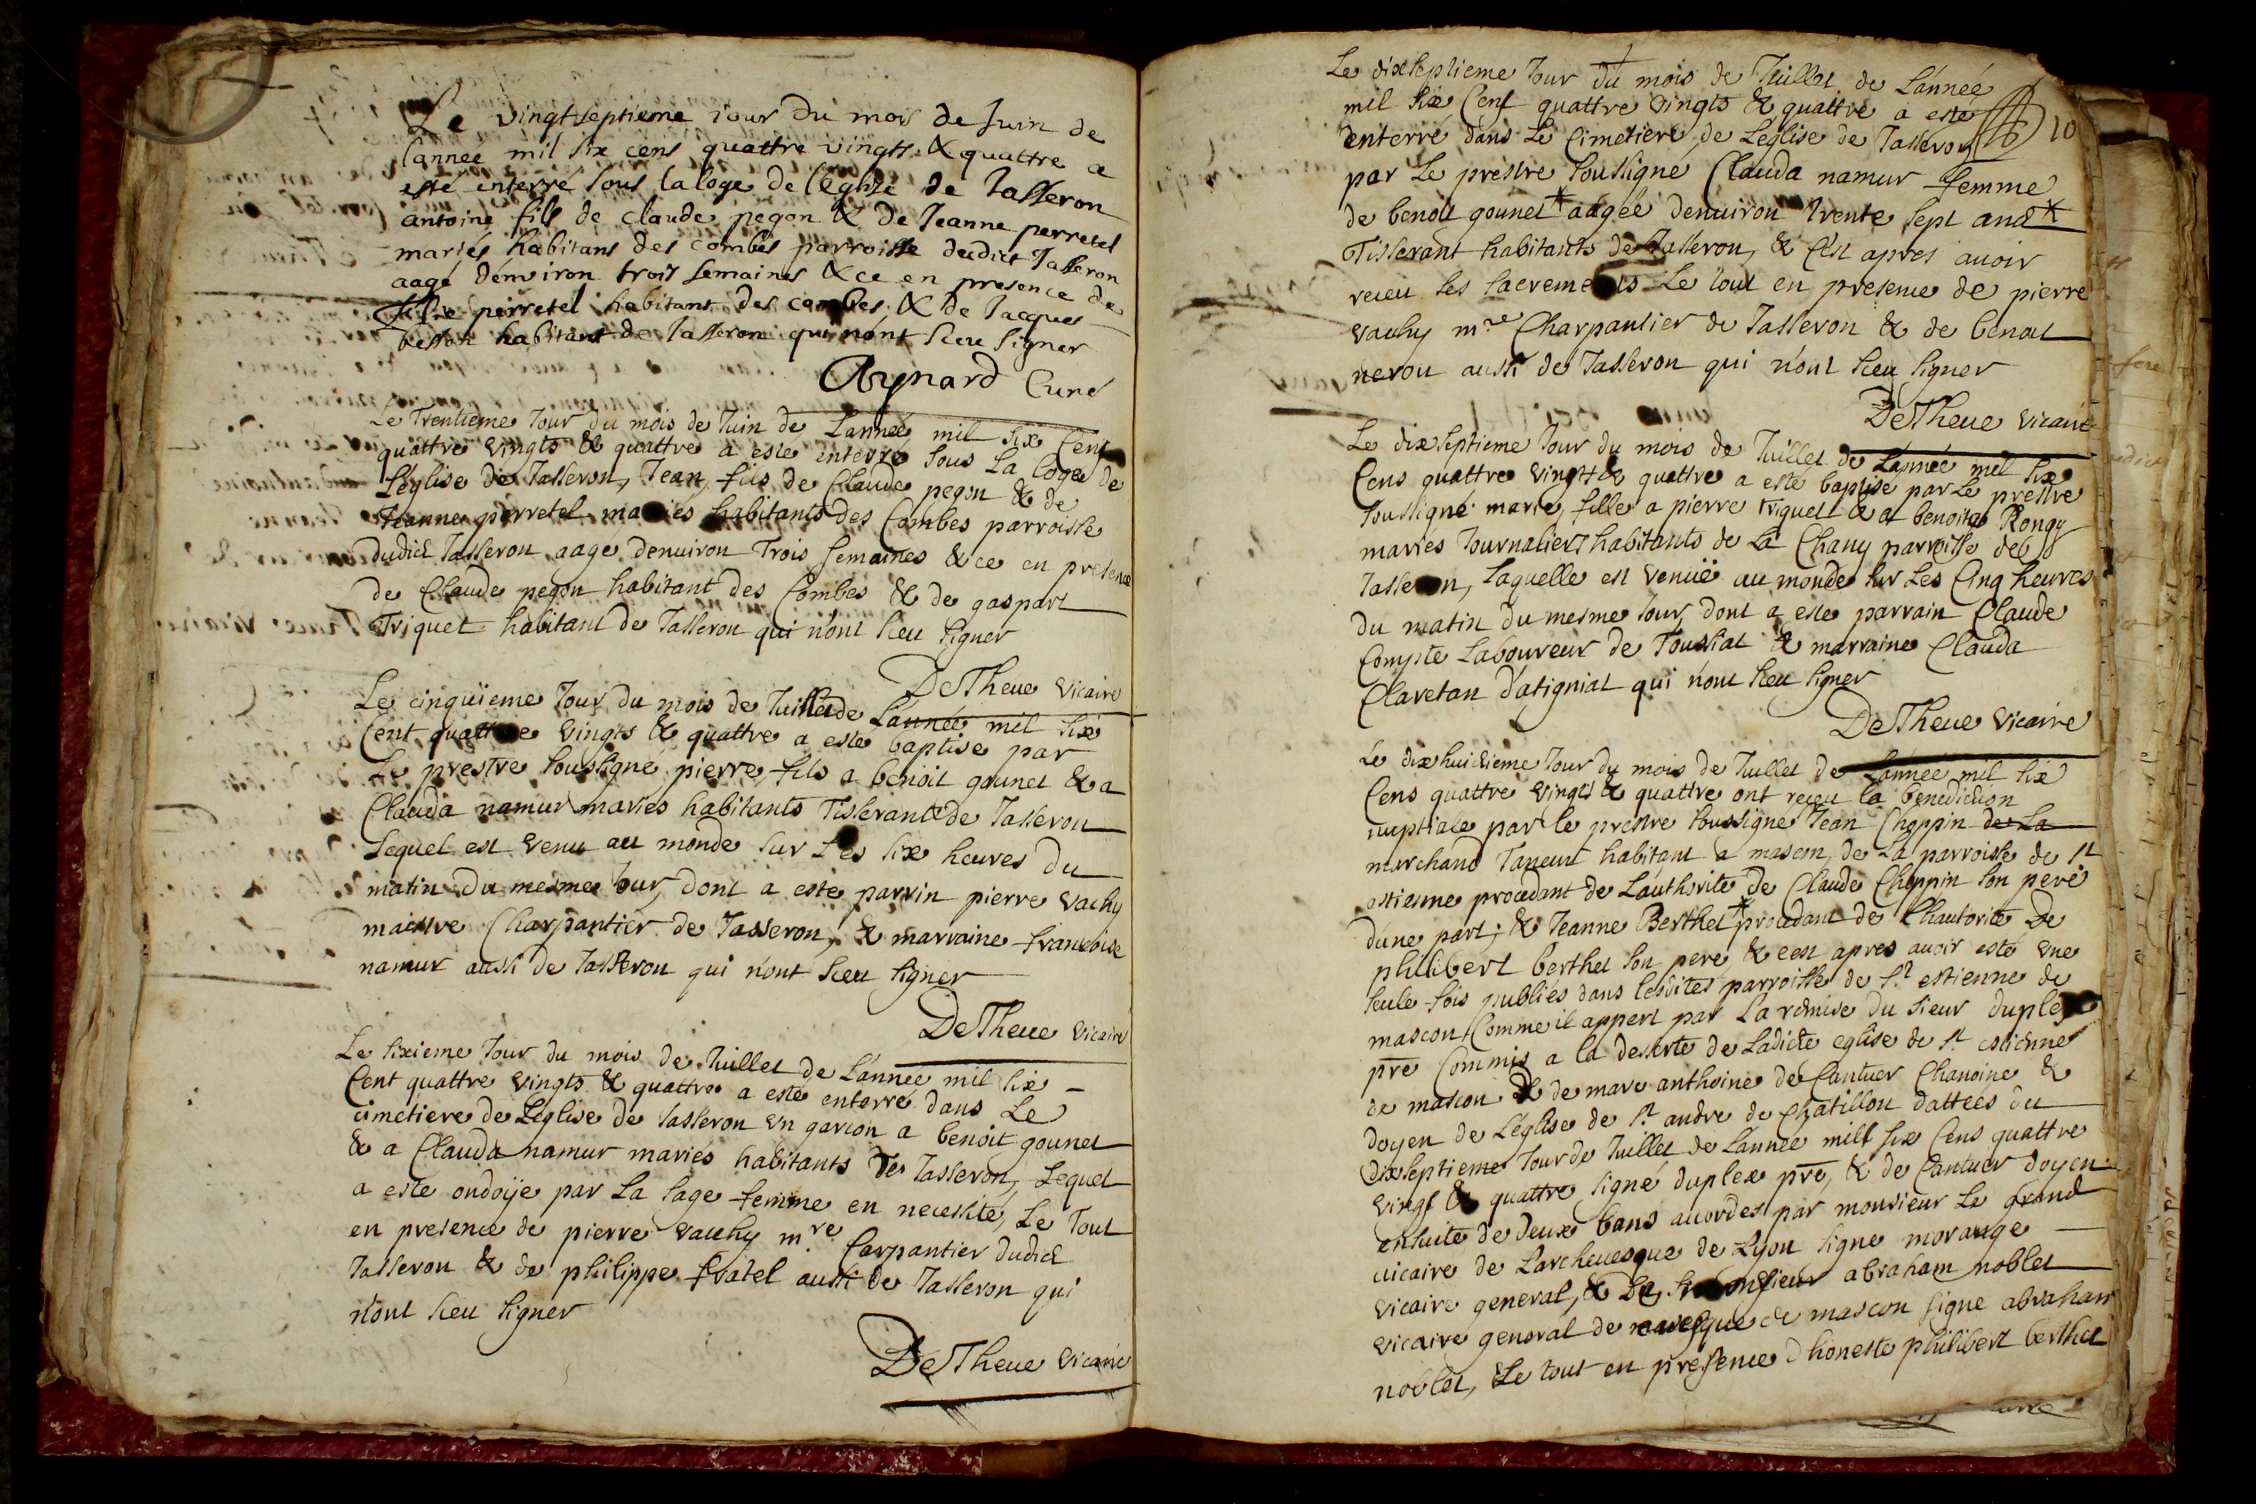 Le vingtseptieme iour du mois de Juin de
l'année mil six cens quattre vingts & quattre a
esté enterré sous la loge de l'eglise de Jasseron
antoine fils de claude pegon & de Jeanne perretel
mariés habitans des combes parroisse dudict Jasseron
aagé d'environ trois semaines & ce en presence de
perretel habitant des combes & de Jacques
besson habitant de Jasseron qui n'ont sceu signer
Aynard Curé
Le Trentieme Jour du mois de Juin de L'année mil six Cent
quattre vingts & quattre a esté enterré sous La loge de
L'église de Jasseron, Jean, fils de Claude pegon & de
Jeanne perretel mariés habitants des Combes parroisse
dudict Jasseron, aagé denuiron Trois semaines & ce en presence
de Claude pegon habitant des Combes & de gaspart
Triquet habitant de Jasseron qui n'ont sceu signer
DeTheue vicaire
Le cinquieme Jour du mois de Juillet de L'année mil six
Cent quattre vingts & quattre a esté baptisé par
Le prestre soussigné pierre, fils a benoit gounet & a
Clauda namur mariés habitants Tisserant de Jasseron
Lequel est venu au monde sur Les six heures du
matin du mesme Jour, dont a esté parrin pierre vachy
maistre Charpantier de Jasseron, & marraine francoise
namur aussi de Jasseron qui n'ont sceu signer
DeTheue vicaire
Le sixieme Jour du mois de Juillet de L'année mil six
Cent quattre vingts & quattre a esté enterré dans Le
cimetiere de L'église de Jasseron un garcon a benoit gounet
& a Clauda namur mariés habitants de Jasseron, Lequel
a esté ondoÿe par La sage femme en necessité, Le Tout
en presence de pierre vauhy m.re Carpantier dudict
Jasseron & de philippe fratel aussi de Jasseron qui
n'ont sceu signer
DeTheue vicaire
10
Le dixseptieme Jour du mois de Juillet de L'année
mil six Cens quattre vingts & quattre a esté
enterré dans Le Cimetiere de L'église de Jasseron
par Le prestre soussigné Clauda namur femme
de benoit gounet * aagée denuiron Trente sept ans *
Tisserant habitants de Jasseron, & C'est apres auoir
receu les sacrements Le tout en presence de pierre
vauhy m.re Charpantier de Jasseron & de benoit
neron aussi de Jasseron qui n'ont sceu signer
DeTheue vicaire
Le dixseptieme Jour du mois de Juillet de L'année mil six
Cens quattre vingts & quattre a esté baptisé par Le prestre
soussigné marie, fille a pierre Triquet & a benoite Rongy
mariés Journaliers habitants de La Chany parroisse de
Jasseron, Laquelle est venuë au monde sur Les Cinq heures
du matin du mesme Jour, dont a esté parrain Claude
Compte Laboureur de Toussiat & marraine Clauda
Clavetan d'atigniat qui n'ont sceu signer
DeTheue vicaire
Le dixhuictieme Jour du mois de Juillet de L'année mil six
Cens quattre vingts & quattre ont receu la benediction
nuptiale par le prestre soussigné Jean Choppin de La
marchand Taneur habitant a mascon, de La parroisse de st
estienne procedant de L'authorité de Claude Choppin son pere
d'une part; & Jeanne Berthet * procedant de Lhautorité De
philibert berthet son pere & cest apres auoir esté une
seule fois publiés dans lesdites parroisse de st estienne de
mascon, Comme il appert par La remise du sieur duplex
pre Commis a la deserte de Ladicte eglise de st estienne
de mascon & de marc anthoine de Cantuer Chanoine &
doyen de L'église de st andre de Chatillon dattées du
Dixseptieme Jour de Juillet de L'année mill six Cens quattre
vingt & quattre signé duplex pre, & de Cantuer doyen
ensuite de Deux bans accordés par monsieur Le grand
uicaire de Larcheuesque de Lyon signé morange
vicaire general, & De monsieur abraham noblet
vicaire general de euesque de mascon signé abraham
noblet, Le tout en presence d'honeste philibert berthet